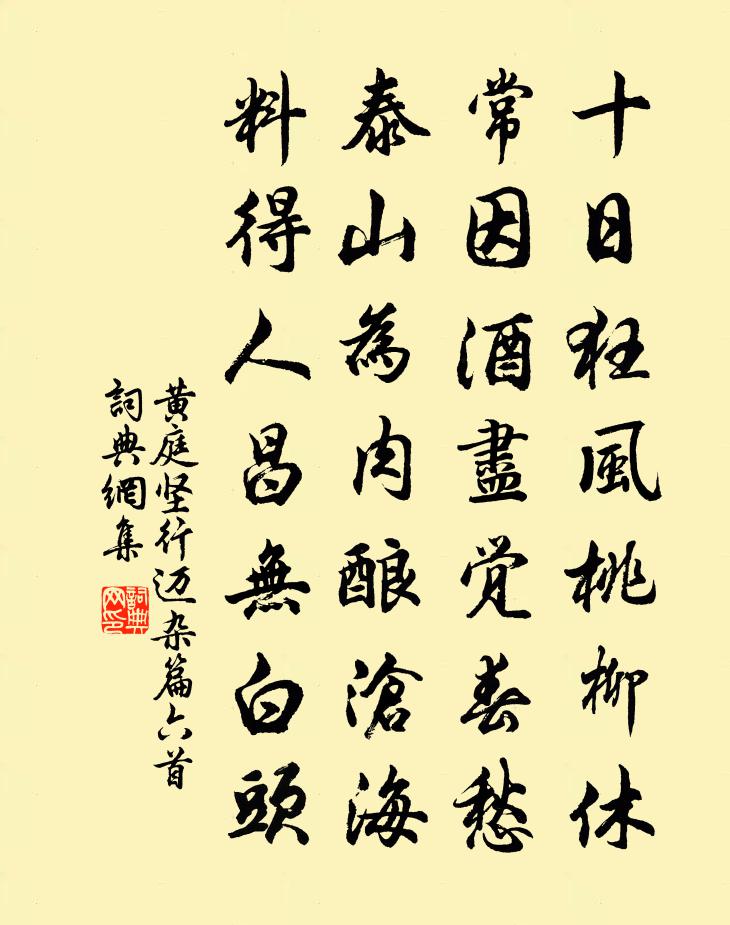 十日狂風桃柳休
常因酒盡覚春愁
泰山為肉酿滄海
料得人昌無白頭
黄庭坚行迈杂篇六首
詞典網集
詞典网印